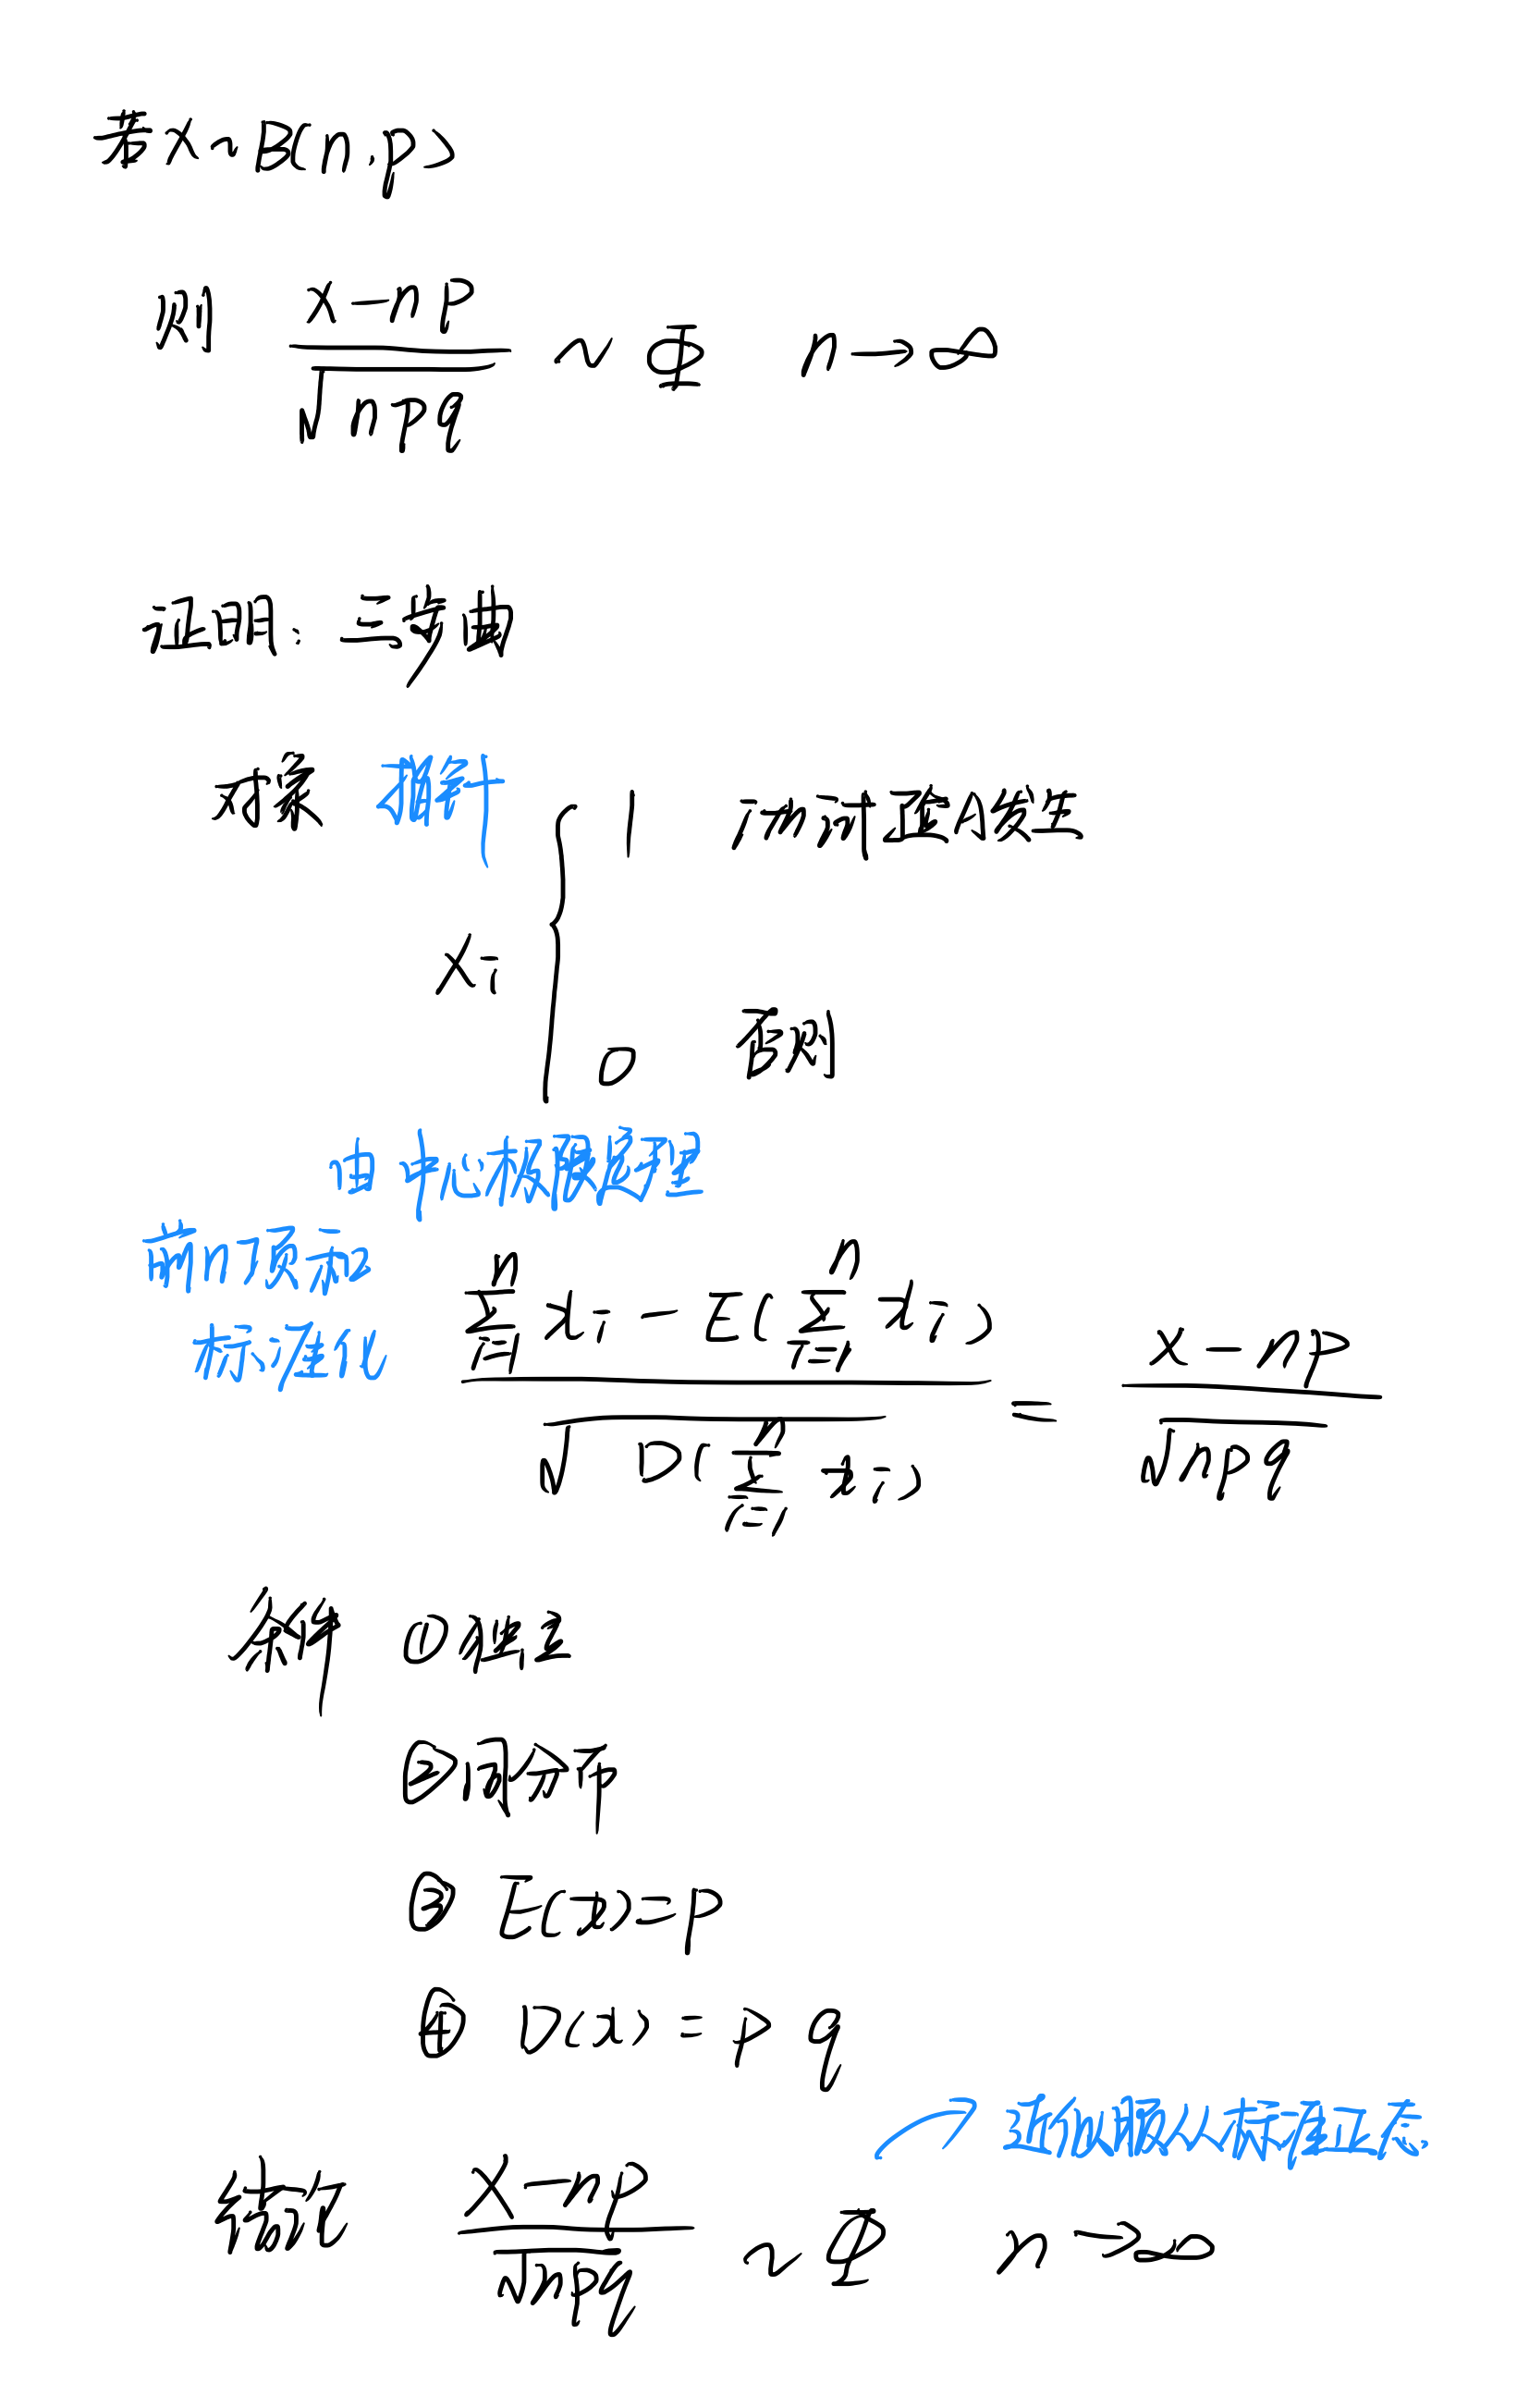 若X~B(n,p)
则 (X-np)/√(npq) ~ Φ n→∞
证明: 三步曲
对象 拆
1
Xi {
0 否则
由中心极限定理
前n项和
标准化
(∑_{i=1}^{n} xi - E(∑_{i=1}^{n} xi))/√(D(∑_{i=1}^{n} xi)) = (X-np)/√(npq)
条件 ①独立
②同分布
③ E(x)=p
④ D(x)=pq
近似服从标准正态
结论 (X-np)/√(npq) ~ Φ n→∞